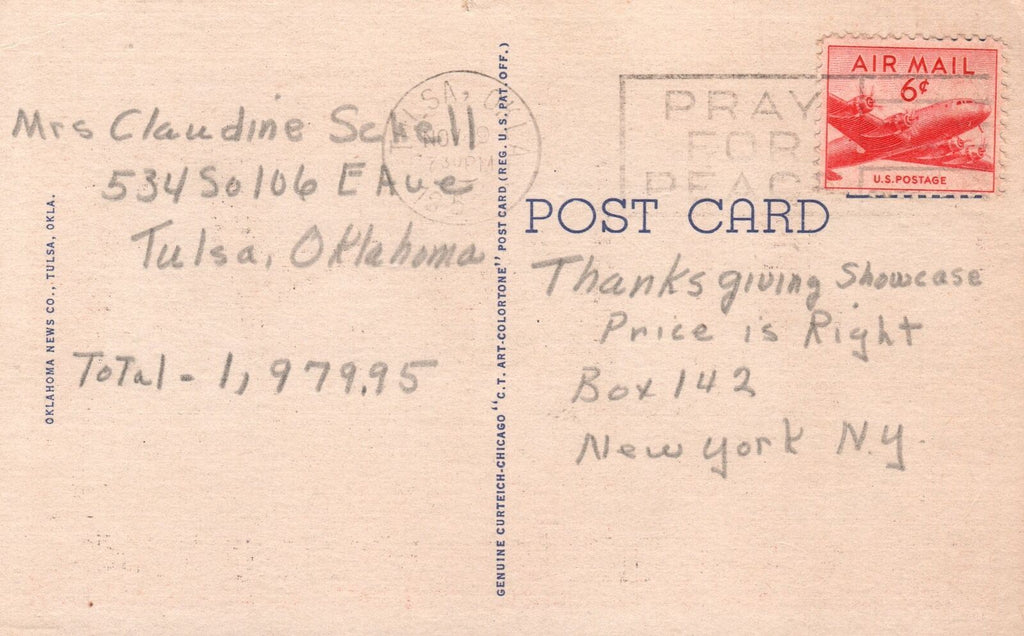 Mrs Claudine Schell
534 So 106 E Ave
Tulsa, Oklahoma
Total - 1,979.95
OKLAHOMA NEWS CO., TULSA, OKLA.
GENUINE CURTEICH-CHICAGO "C.T. ART-COLORTONE" POST CARD (REG. U.S. PAT. OFF.)
TULSA, OKLA
NOV
730 PM
PRAY
FOR
PEACE
AIR MAIL
6¢
U.S. POSTAGE
POST CARD
Thanksgiving Showcase
Price is Right
Box 142
New York N.Y.